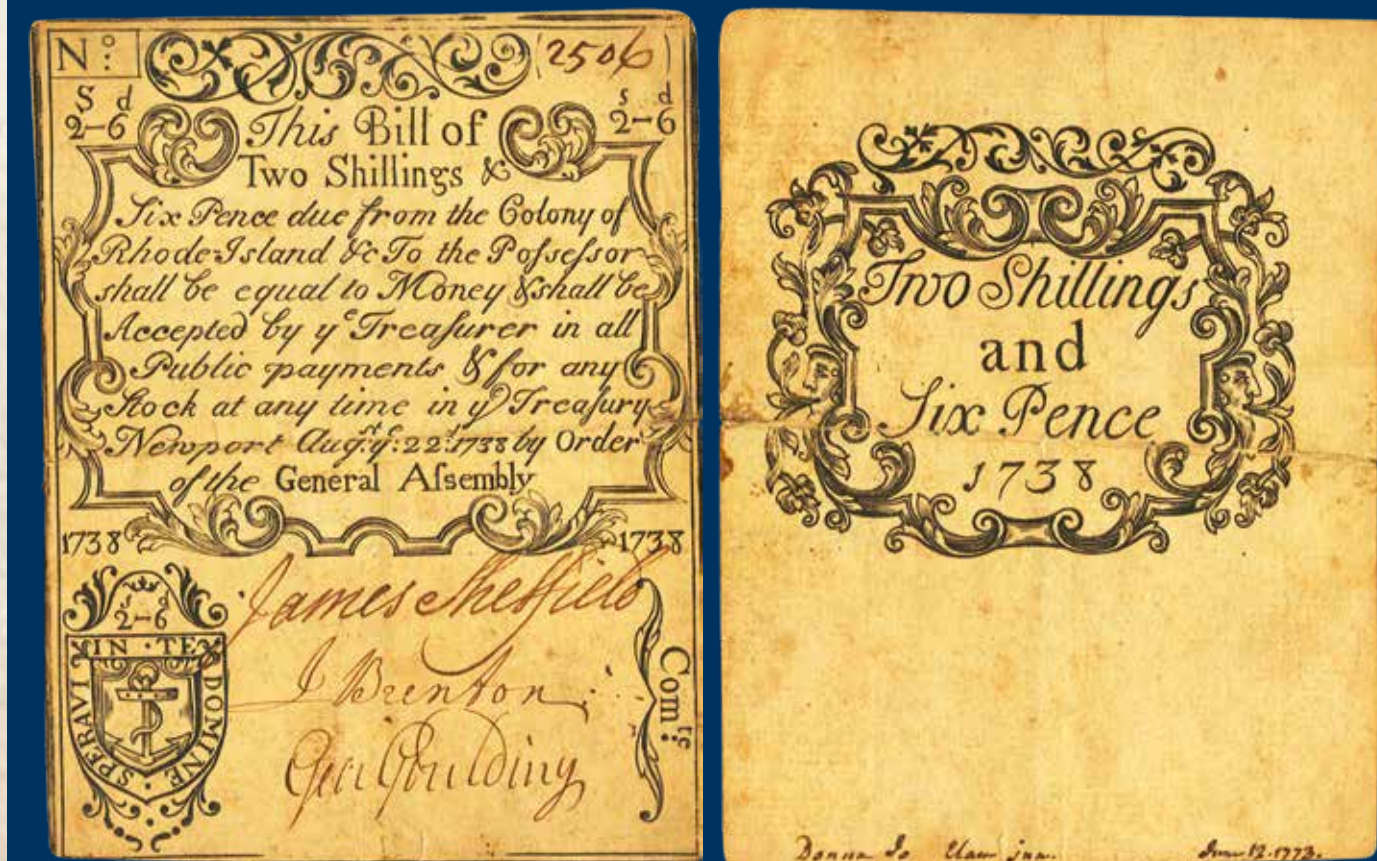 No: (2506)
s d
2-6
s d
2-6
This Bill of
Two Shillings &
Six Pence due from the Colony of
Rhode-Island &c To the Poſseſsor
shall be equal to Money & shall be
Accepted by ye Treaſurer in all
Public payments & for any
Stock at any time in ye Treaſury
Newport Augst. ye: 22d: 1738 by Order
of the General Aſsembly
1738 1738
s d
2-6
IN · TE DOMINE SPERAVI
James Sheffield
J Brenton
Geo Goulding
Comtte:
Two Shillings
and
Six Pence
1738
12. 1773.